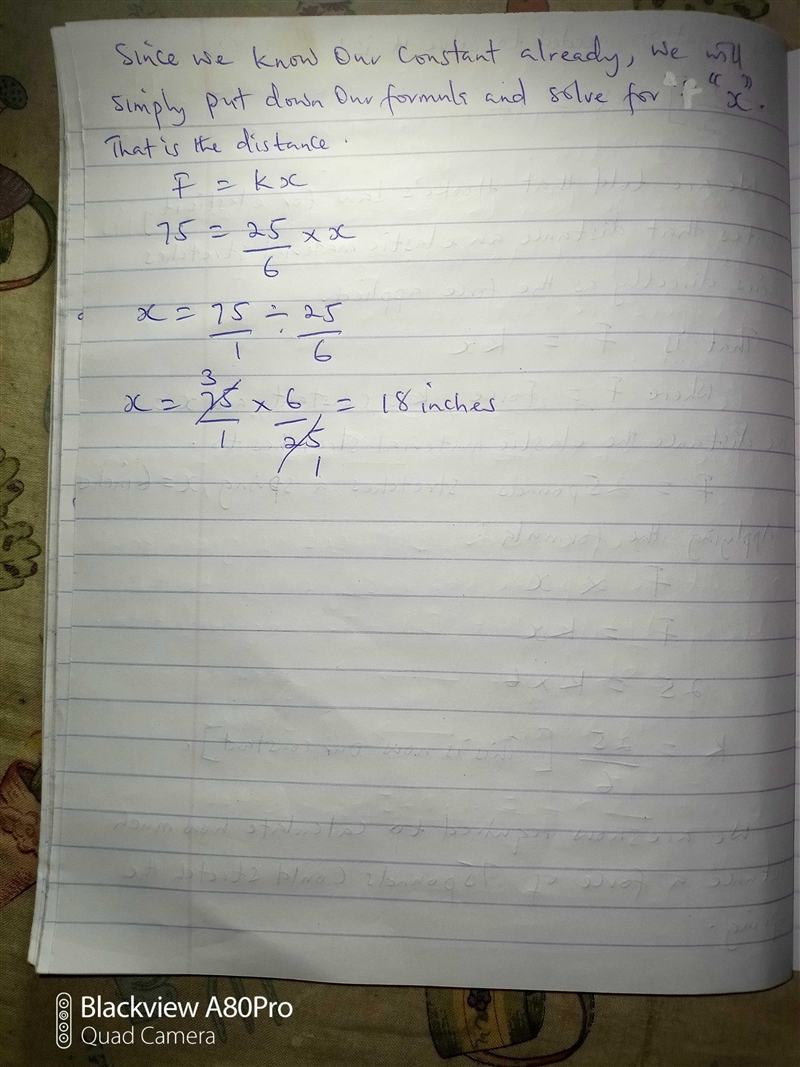 Since we know Our Constant already, we will
simply put down Our formula and solve for "x".
That is the distance.
F = kx
75 = 25/6 × x
x = 75/1 ÷ 25/6
3
x = 75/1 × 6/25 = 18 inches
1
Blackview A80Pro
Quad Camera